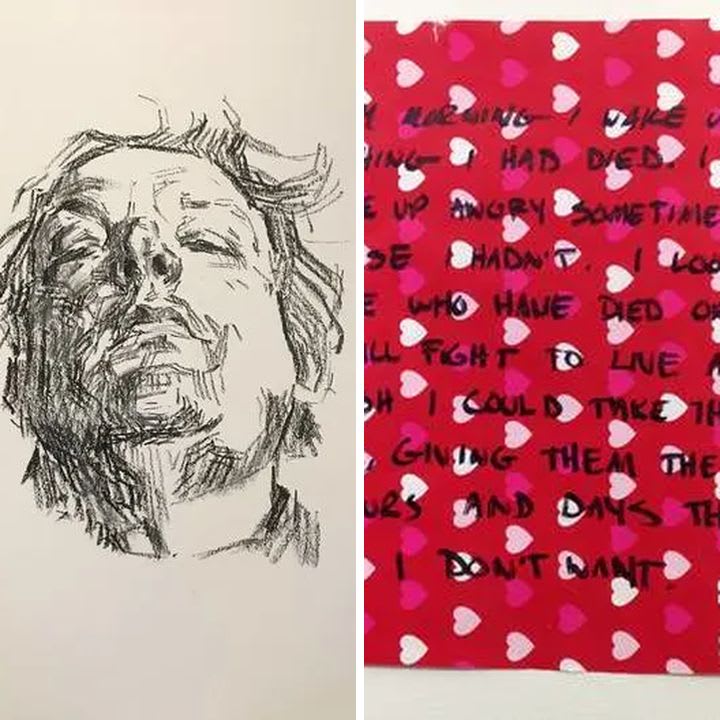 MORNING I WAKE
I HAD DIED. I
UP ANGRY SOMETIME
I HADN'T. I LOO
WHO HAVE DIED O
FIGHT TO LIVE
I COULD TAKE TH
GIVING THEM THE
AND DAYS TH
I DON'T WANT